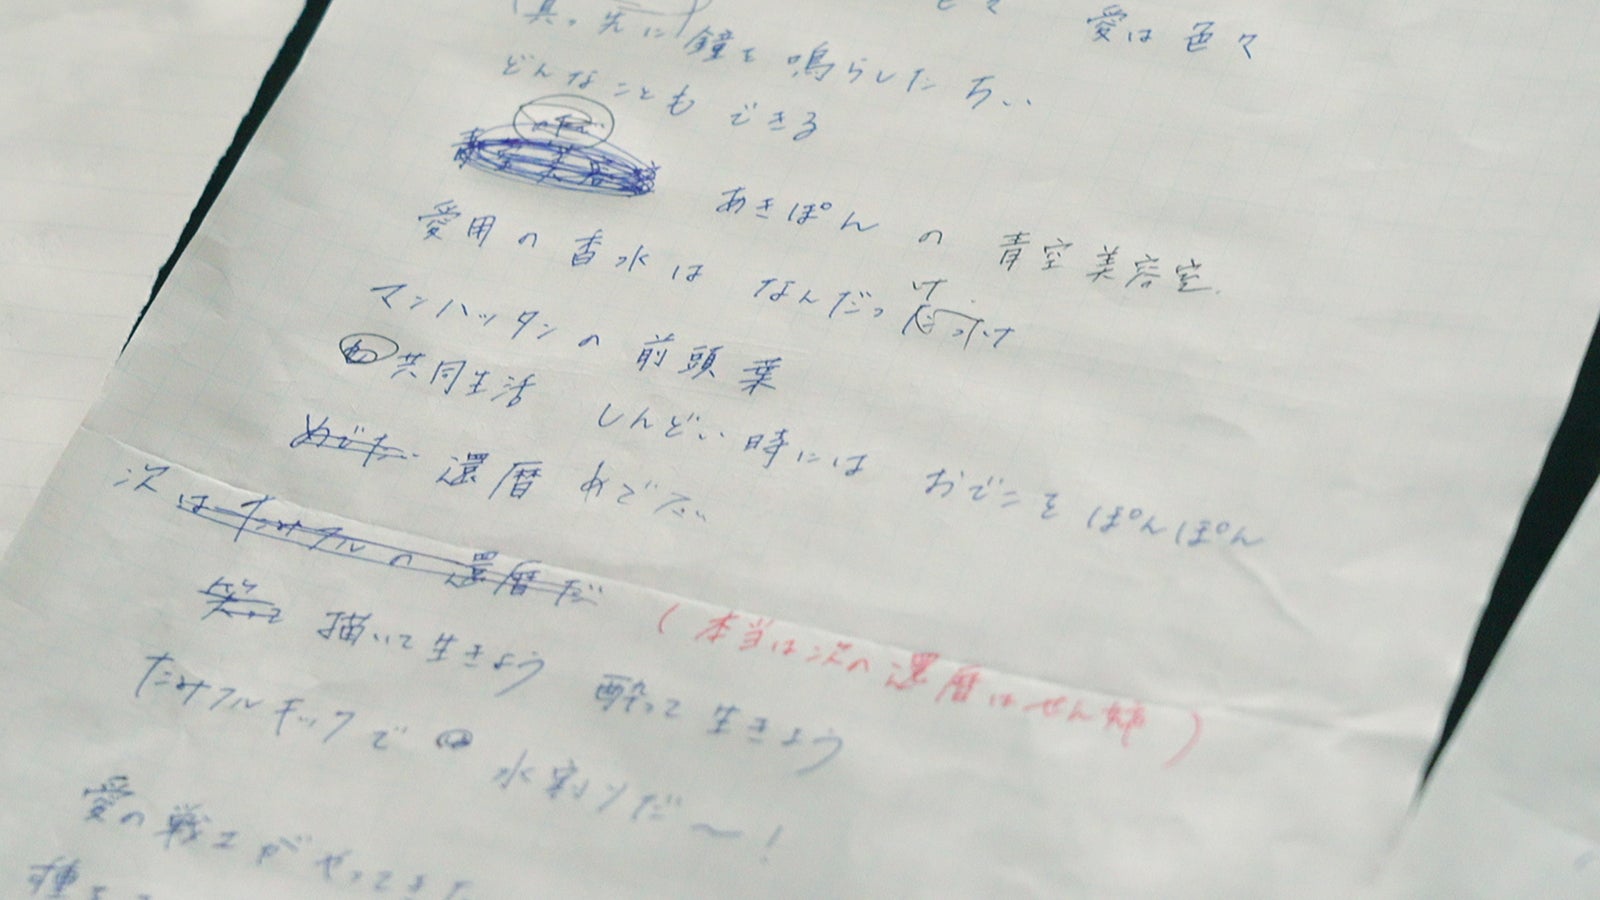 愛は色々
真っ先に鐘を鳴らしたらいい
どんなこともできる
青空美容室 あきぽんの青空美容室.
愛用の香水はなんだっけ だったっけ
マンハッタンの前頭葉
共同生活 しんどい時には おでこをぽんぽん
めでたい 還暦めでたい
次はたみフルの還暦だ (本当は次の還暦はせん姉)
笑って 描いて生きよう 酔って生きよう
たみフルチックで水割りだ〜!
愛の戦士がやってきた
種を